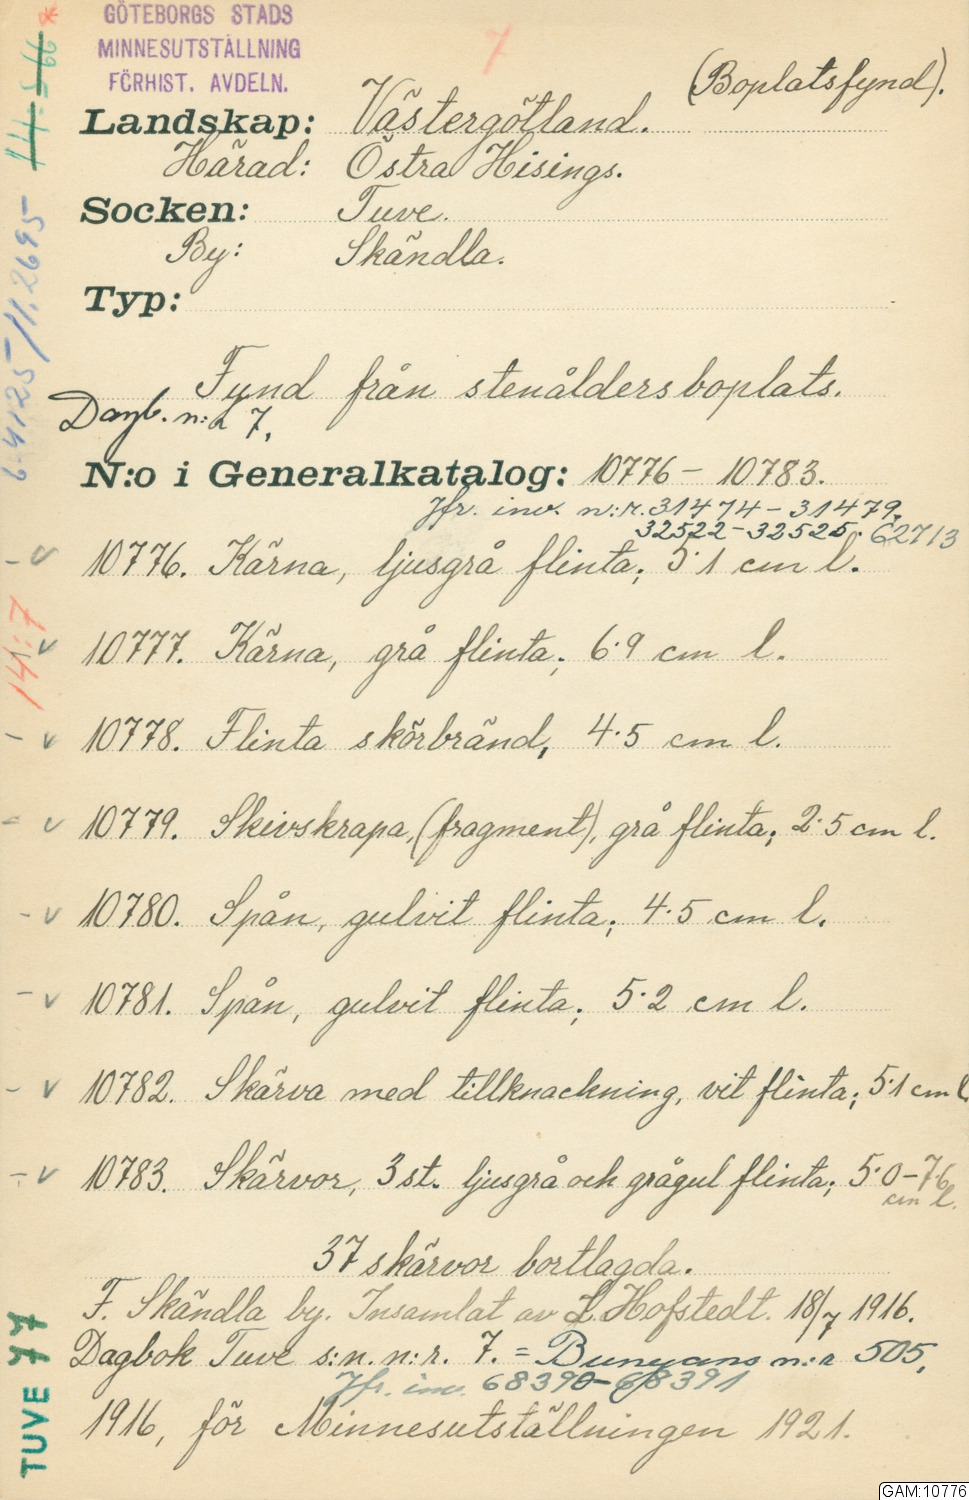 GÖTEBORGS STADS
MINNESUTSTÄLLNING
FÖRHIST. AVDELN.
7
(Boplatsfynd).
Landskap: Västergötland.
Härad: Östra Hisings.
Socken: Tuve.
By: Skändla.
Typ:
Fynd från stenåldersboplats.
Dagb. n:r 7.
N:o i Generalkatalog: 10776 - 10783.
Jfr. inv. n:r. 31474 - 31479,
32522 - 32525. 62713
10776. Kärna, ljusgrå flinta; 5·1 cm l.
10777. Kärna, grå flinta; 6·9 cm l.
10778. Flinta skörbränd, 4·5 cm l.
10779. Skivskrapa, (fragment), grå flinta; 2·5 cm l.
10780. Spån, gulvit flinta; 4·5 cm l.
10781. Spån, gulvit flinta; 5·2 cm l.
10782. Skärva med tillknackning, vit flinta; 5·1 cm l
10783. Skärvor, 3 st. ljusgrå och grågul flinta; 5·0 - 7·6
cm l.
37 skärvor bortlagda.
F. Skändla by. Insamlat av L. Hofstedt. 18/7 1916.
Dagbok Tuve s:n. n:r. 7. = Bunyans n:r 505,
Jfr. inv. 68390 - 68391
1916, för Minnesutställningen 1921.
14:7
TUVE 77
GAM:10776